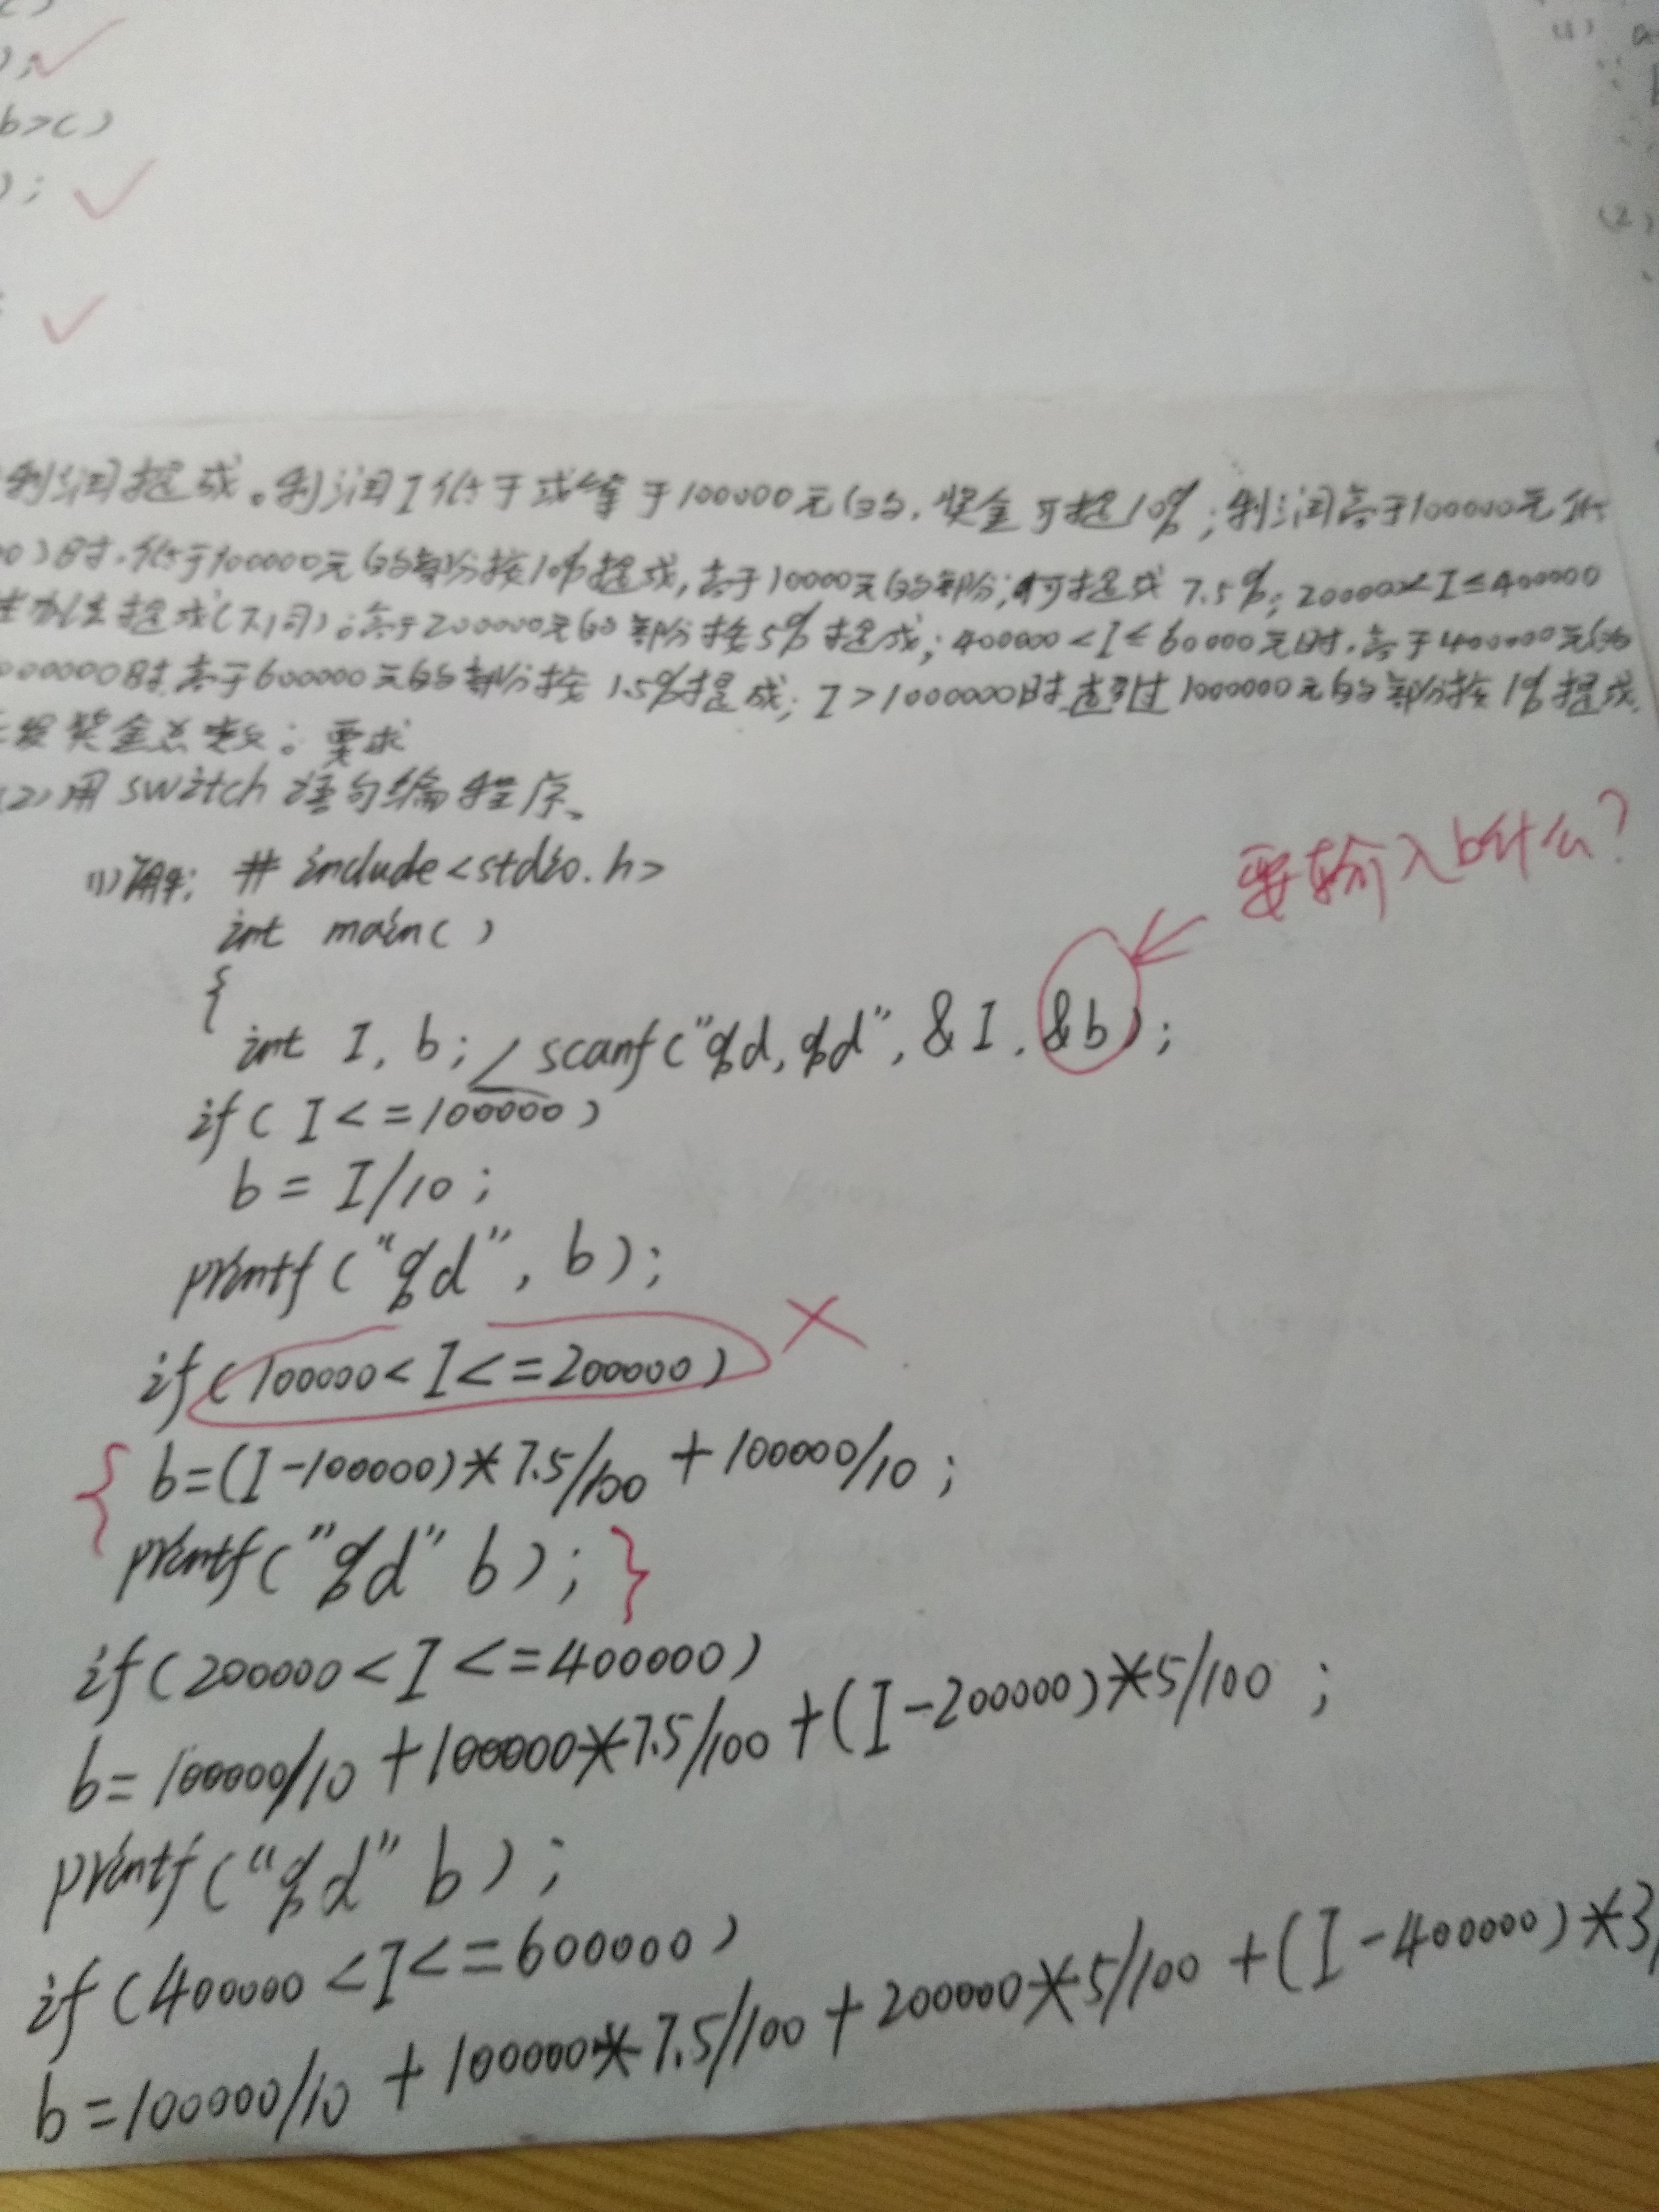 );
b>c)
);
(1) a
(2)
利润提成。利润I低于或等于100000元的,奖金可提10%;利润高于100000元低
00)时,低于100000元的部分按10%提成,高于10000元的部分,可提成 7.5%;200000<I≤400000
提成(下同);高于200000元的部分按5%提成;400000<I≤60000元时,高于400000元的
000000时,高于600000元的部分按1.5%提成;I>1000000时超过1000000元的部分按1%提成.
奖金总数。要求
(2)用switch语句编程序、
(1)解: # include<stdio.h>
要输入b什么?
int main()
{
int I, b; scanf("%d,%d", &I, &b);
if( I<=100000)
b = I/10;
printf("%d", b);
if(100000<I<=200000)
{ b=(I-100000)*7.5/100+100000/10;
printf("%d" b); }
if(200000<I<=400000)
b=100000/10+100000*7.5/100+(I-200000)*5/100;
printf("%d" b);
if(400000<I<=600000)
b=100000/10+100000*7.5/100+200000*5/100+(I-400000)*3/